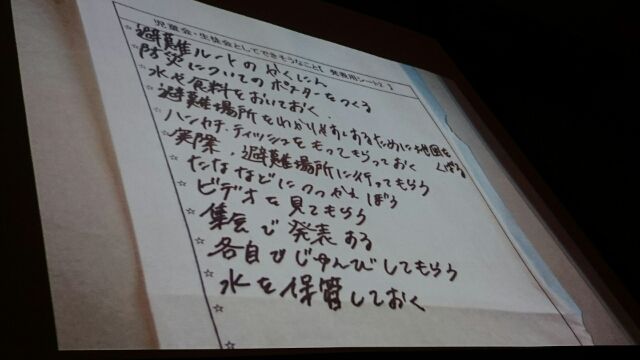 児童会・生徒会としてできそうなこと【発表用シート2】
☆避難ルートのかくにん
☆防災についてのポスターをつくる
☆水や食料をおいておく
☆避難場所をわかりやすくするために地図をくばる
☆ハンカチ・ティッシュをもってもらっておく
☆実際、避難場所に行ってもらう
☆たななどにつっかえぼう
☆ビデオを見てもらう
☆集会で発表する
☆各自でじゅんびしてもらう
☆水を保管しておく
☆
☆